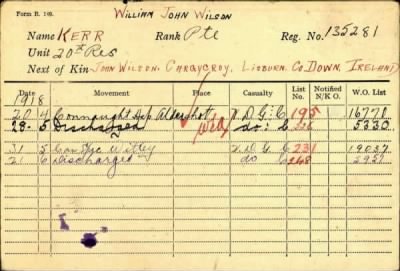 Form B. 103.
WILLIAM JOHN WILSON
Name KERR Rank Pte Reg. No. 135281
Unit 20th Res
Next of Kin JOHN WILSON. CARGYCROY, LISBURN. Co. DOWN, IRELAND
Date Movement Place Casualty List No. Notified N/K O. W.O. List
1918
20 4 Connaught Hsp Aldershot V.D.G. C 195 16770
28 5 Discharged do. C 5330
31 5 Con. Hsp Witley V.D.G. C 231 19037
21 6 Discharged do C 248 2957